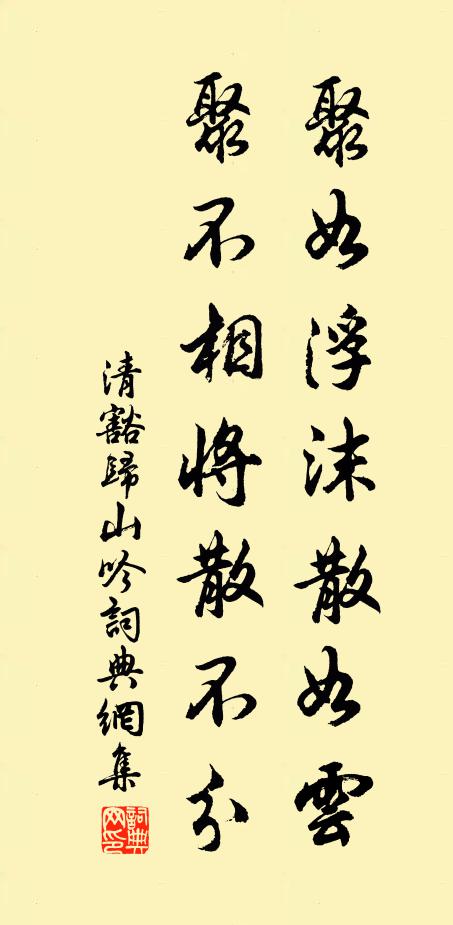 聚如浮沫散如雲
聚不相將散不分
清豁歸山吟詞典網集
詞典网印